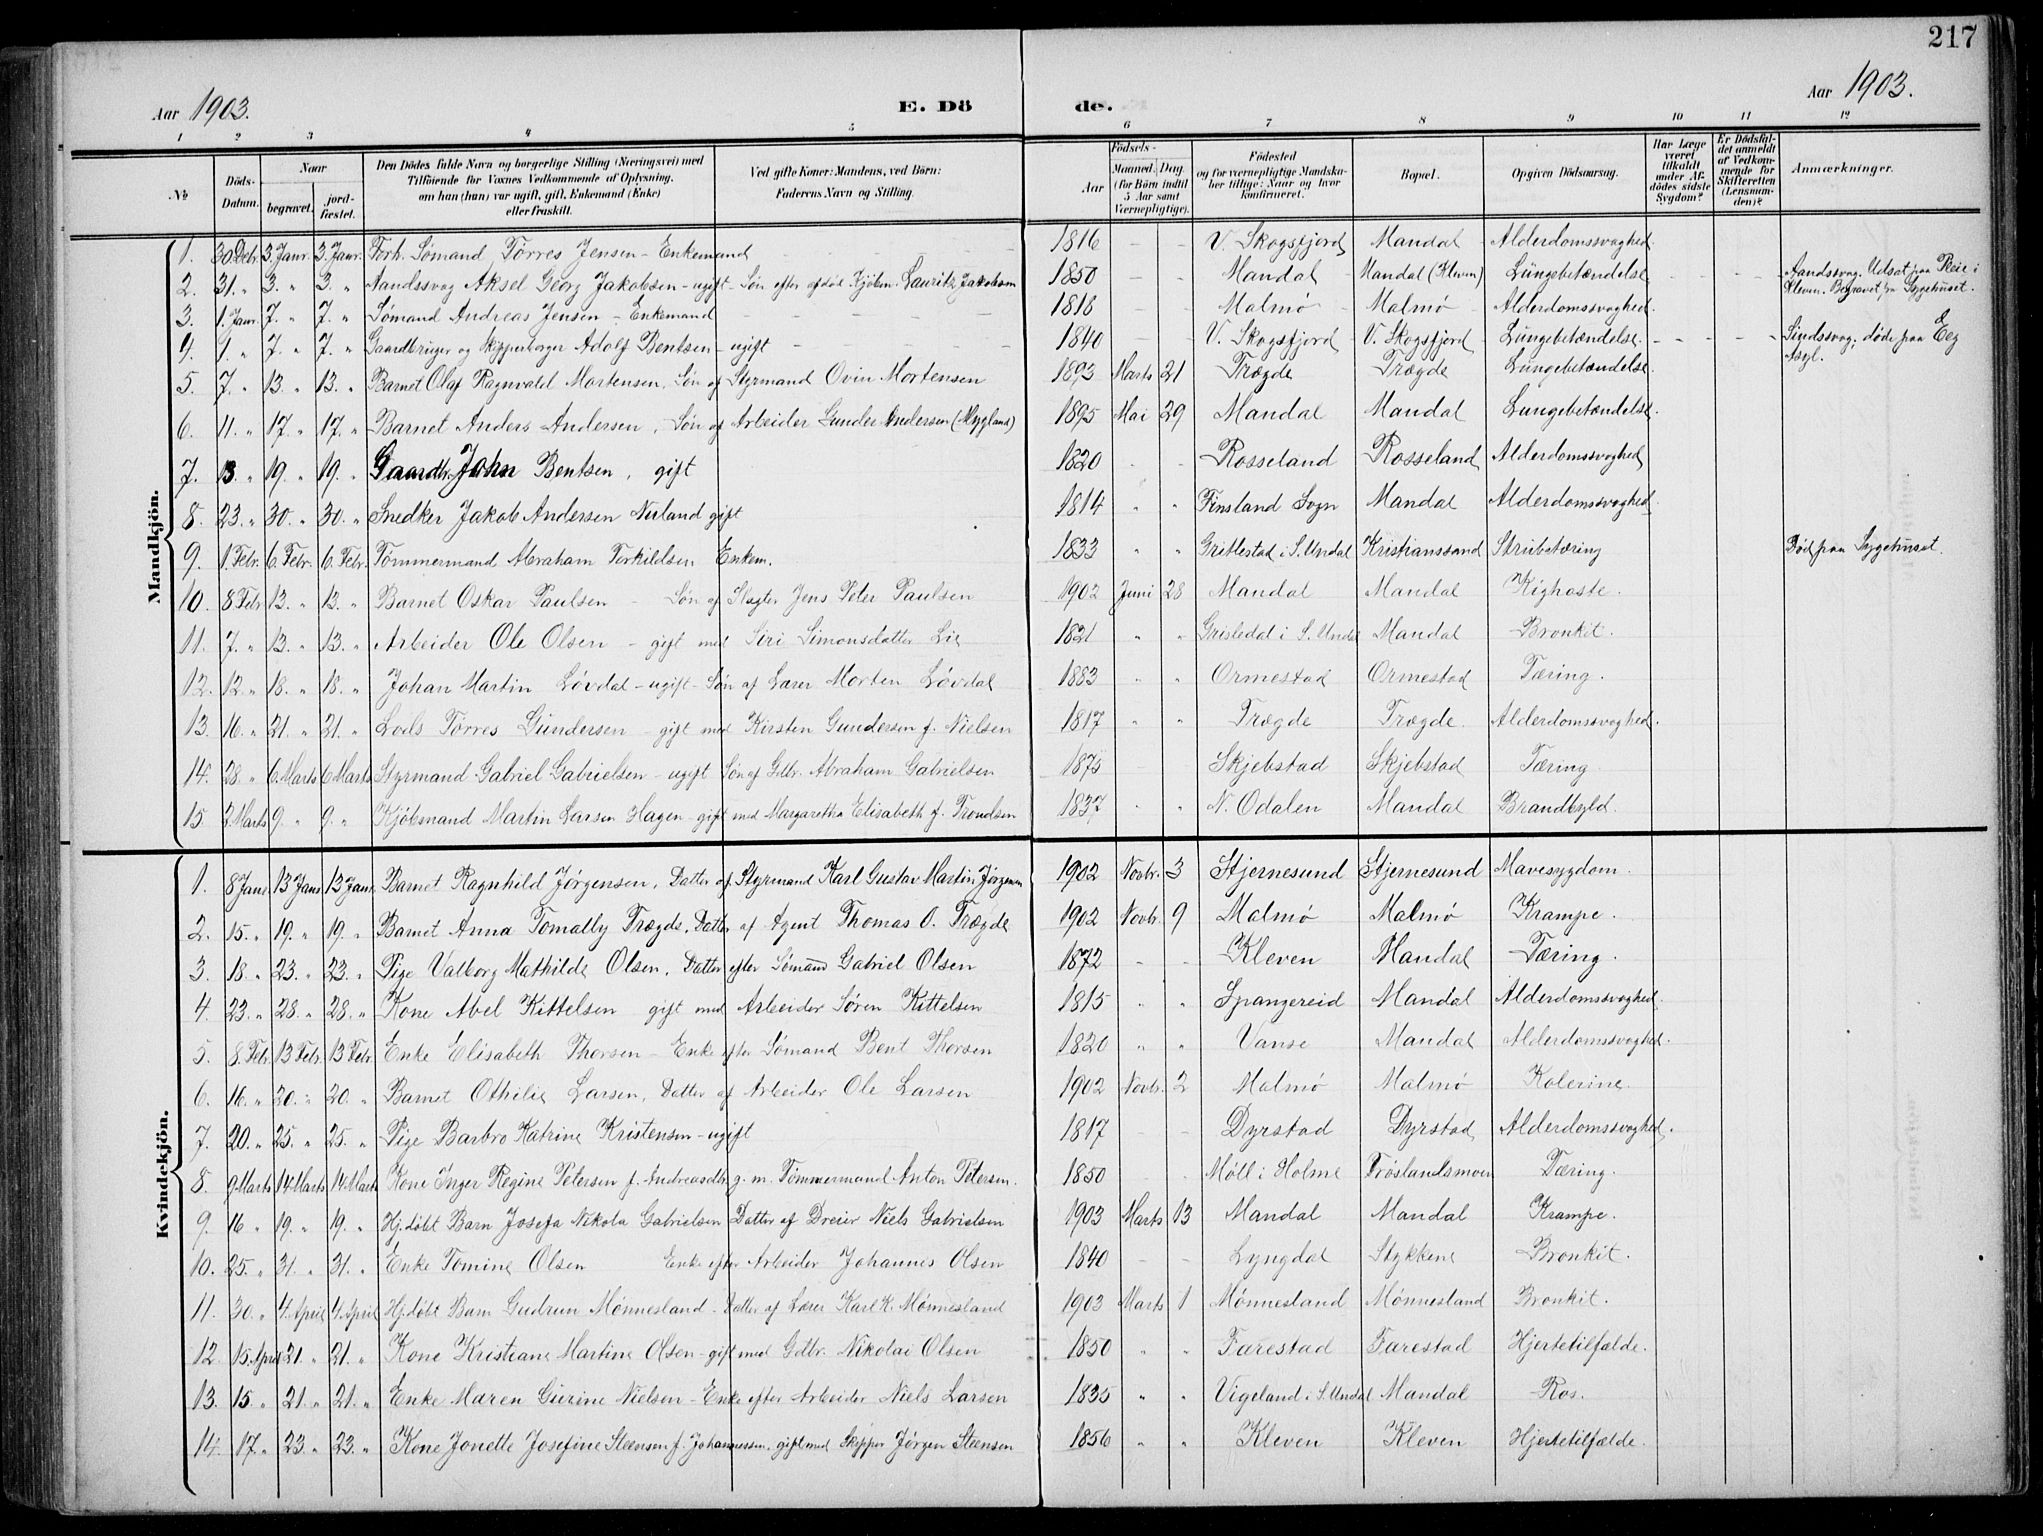 217
Aar 1903. E. Dö de. Aar 1903.
1 2 3 4 5 6 7 8 9 10 11 12
№ Döds-Datum. Naar begravet. jord-fæstet. Den Dödes fulde Navn og borgerlige Stilling (Næringsvei) med Tilföiende for Voxnes Vedkommende af Oplysning, om han (hun) var ugift, gift, Enkemand (Enke) eller fraskilt. Ved gifte Koner: Mandens, ved Börn: Faderens Navn og Stilling. Födsels- Aar Maaned. Dag. (for Börn indtil 5 Aar samt Værnepligtige). Födested og for værnepligtige Mandskaber tillige: Naar og hvor konfirmeret. Bopæl. Opgiven Dödsaarsag. Har Læge været tilkaldt under Afdödes sidste Sygdom? Er Dödsfaldet anmeldt af Vedkommende for Skifteretten (Lensmanden)? Anmærkninger.
Mandkjön.
1. 30 Debr. 3. Janr. 3. Janr. Forh. Sømand Tørres Jensen - Enkemand 1816 V. Skogsfjord Mandal Alderdomssvaghed.
2. 31. " 3. " 3. " Aandssvag Aksel Georg Jakobsen - ugift - Søn efter afdøde Kjøbm. Lauritz Jakobsen 1850 Mandal Mandal (Kleven) Lungebetændelse Aandssvag. Udsat paa Pleie i Kleven. Begravet fra Sygehuset.
3. 1. Janr. 7. " 7. " Sømand Andreas Jensen - Enkemand 1818 Malmø Malmø Alderdomssvaghed.
4. 1. " 7. " 7. " Gaardbruger og Skipperborger Adolf Bentsen - ugift 1840 V. Skogsfjord V. Skogsfjord Lungebetændelse. Sindssvag; døde paa Eeg Asyl.
5. 7. " 13. " 13. " Barnet Olaf Ragnvald Mortensen, Søn af Styrmand Ovin Mortensen 1893 Marts 21 Trægde Trægde Lungebetændelse.
6. 11. " 17. " 17. " Barnet Anders Andersen, Søn af Arbeider Gunder Andersen (Mygland) 1895 Mai 29 Mandal Mandal Lungebetændelse.
7. 13 " 19. " 19. " Gaardbr. John Bentsen, gift 1820 " " Rosseland Rosseland Alderdomssvaghed
8. 23. " 30. " 30. " Snedker Jakob Andersen Nuland gift 1814 " " Finsland Sogn Mandal Alderdomssvaghed.
9. 1. Febr. 6. Febr. 6. Febr. Tømmermand Abraham Terkildsen Enkem. 1833 " " Grittestad i S. Undal Kristianssand Strubetæring Død paa Sygehuset.
10. 8 Febr. 13. " 13. " Barnet Oskar Paulsen - Søn af Slagter Jens Peter Paulsen 1902 Juni 28 Mandal Mandal Kighoste.
11. 7. " 13. " 13. " Arbeider Ole Olsen - gift med Siri Simonsdatter Lie 1821 " " Grisledal i S. Undal Mandal Bronkit.
12. 12. " 18. " 18. " Johan Martin Løvdal - ugift - Søn af Lærer Morten Løvdal 1883 " " Ormestad Ormestad Tæring.
13. 16. " 21. " 21. " Lods Tørres Gundersen - gift med Kirsten Gundersen f. Nielsen 1817 " " Trægde Trægde. Alderdomssvaghed.
14. 28. " 6. Marts 6 Marts Styrmand Gabriel Gabrielsen - ugift Søn af Gdbr. Abraham Gabrielsen 1875 Skjebstad Skjebstad Tæring
15 3 Marts 9. " 9. " Kjøbmand Martin Larsen Hagen - gift med Margaretha Elisabeth f. Trondsen 1837 " " N. Odalen Mandal Brandbyld.
Kvindekjön.
1. 8 Janr. 13 Janr 13 Janr Barnet Ragnhild Jørgensen, Datter af Styrmand Karl Gustav Martin Jørgensen 1902 Novbr. 3 Stjernesund Stjernesund Mavesygdom.
2. 15. " 19. " 19. " Barnet Anna Tomally Trægde, Datter af Agent Thomas O. Trægde 1902 Novbr. 9 Malmø Malmø Krampe.
3. 18. " 23. " 23. " Pige Valborg Mathilde Olsen, Datter efter Sømand Gabriel Olsen 1872 Kleven Mandal Tæring.
4. 23. " 28. " 28. " Kone Abel Kittelsen gift med Arbeider Søren Kittelsen 1815 " " Spangereid Mandal Alderdomssvaghed.
5. 8. Febr. 13 Febr. 13 Febr. Enke Elisabeth Thorsen - Enke efter Sømand Bent Thorsen 1820 " " Vanse Mandal Alderdomssvaghed.
6. 16. " 20. " 20. " Barnet Othilie Larsen, Datter af Arbeider Ole Larsen 1902 Novbr. 2 Malmø Malmø Kolerine.
7. 20. " 25. " 25. " Pige Barbro Katrine Kristensen - ugift 1817 Dyrstad Dyrstad Alderdomssvaghed.
8. 9 Marts 14 Marts 14 Marts Kone Inger Regine Petersen f. Andreasdtr. g. m. Tømmermand Anton Petersen. 1850 Møll i Holme Frøslandsmoen Tæring.
9. 16 " 19. " 19. " Hj.døbt Barn Josefa Nikola Gabrielsen Datter af Dreier Niels Gabrielsen 1903 Marts 13 Mandal Mandal Krampe.
10. 25. " 31. " 31. " Enke Tomine Olsen Enke efter Arbeider Johannes Olsen 1840 Lyngdal Stykkene Bronkit.
11. 30. " 4. April 4. April Hj.døbt Barn Gudrun Mønnesland - Datter af Lærer Karl K. Mønnesland 1903 Marts 1 Mønnesland Mønnesland Bronkit.
12. 15. April 21. " 21. " Kone Kristiane Martine Olsen - gift med Gdbr. Nikolai Olsen 1850 " " Farestad Farestad Hjertetilfælde.
13. 15. " 21. " 21. " Enke Maren Gurine Nielsen - Enke efter Arbeider Niels Larsen 1835 " " Vigeland i S. Undal Mandal Ros.
14. 17. " 23. " 23. " Kone Jonette Josefine Steensen f. Johannessen, gift med Skipper Jørgen Steensen 1856 " " Kleven Kleven Hjertetilfælde.